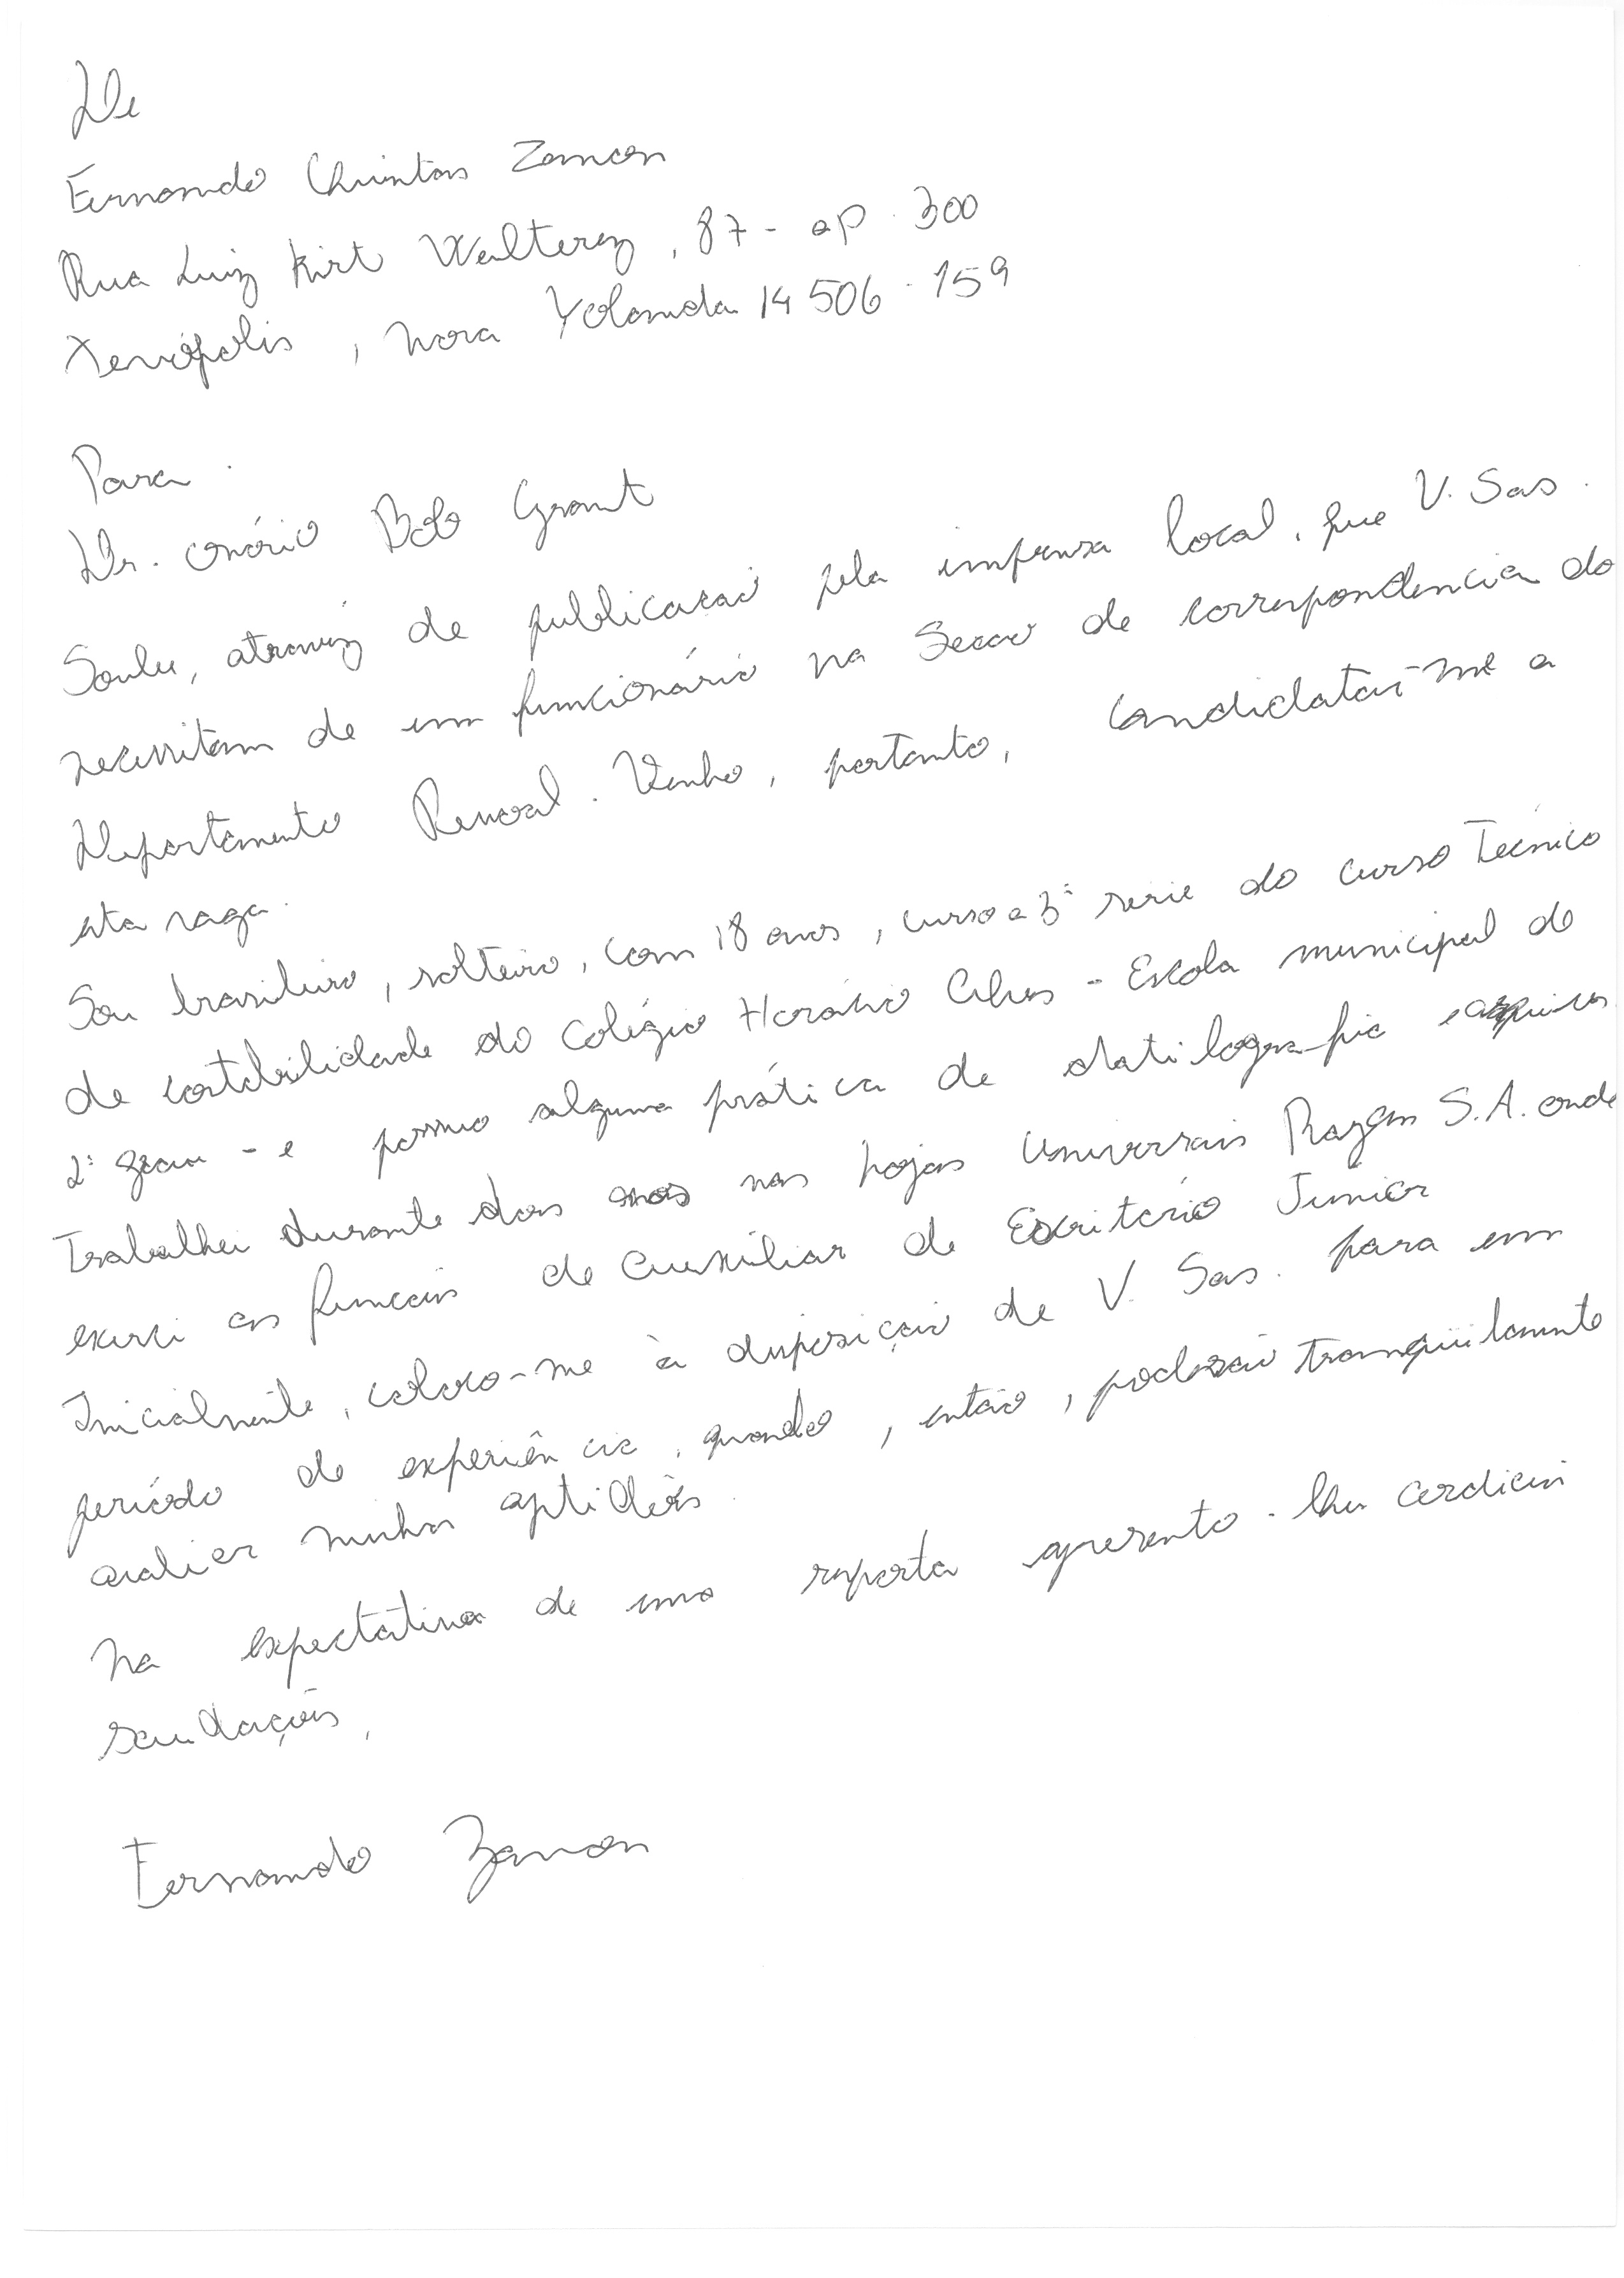 De
Fernando Chuintas Zamcon
Rua Luiz Kirt Walterez, 87 - ap. 300
Xenópolis, Nova Yolanda 14506-159
Para.
Dr. Onório Bob Grant
Soube, atravéz de publicacaõ pela imprensa local, que V. Sas.
necessitam de um funcionário na Secao de correspondencia do
Departamento Pessoal. Venho, portanto, candidatar-me a
esta vaga.
Sou brasileiro, solteiro, com 18 anos, curso a 3ª serie do curso Tecnico
de contabilidade do Colégio Horácio - Escola municipal de
2º grau - e possuo alguma prática de datilografia e arquivos
Trabalhei durante dois anos nas Lojas Universais Razem S.A. onde
exerci as funcoẽs de Auxiliar de Escritório Junior
Inicialmente, coloco-me à disposiçaõ de V. Sas. para um
período de experiência, quando, então, poderão tranqüilamente
avaliar minhas aptidões.
Na expectativa de uma resposta apresento-lhes cordiais
saudações,
Fernando Zamon